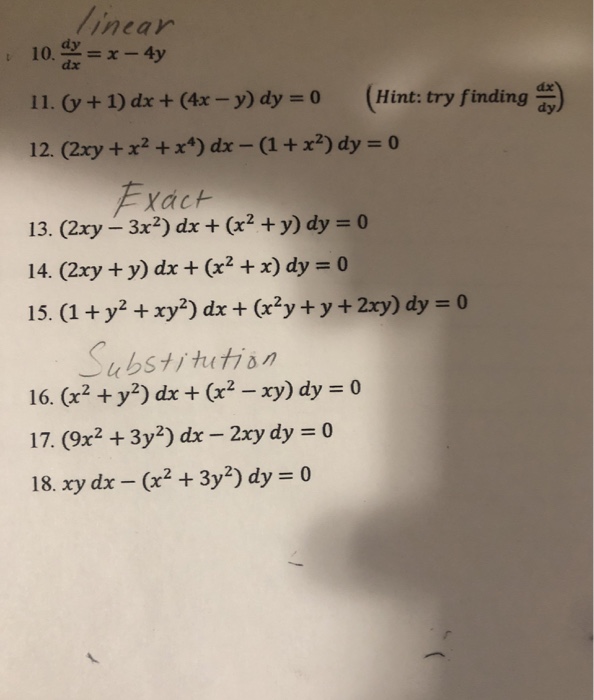 linear
10. dy/dx = x − 4y
11. (y + 1) dx + (4x − y) dy = 0 (Hint: try finding dx/dy)
12. (2xy + x² + x⁴) dx − (1 + x²) dy = 0
Exact
13. (2xy − 3x²) dx + (x² + y) dy = 0
14. (2xy + y) dx + (x² + x) dy = 0
15. (1 + y² + xy²) dx + (x²y + y + 2xy) dy = 0
Substitution
16. (x² + y²) dx + (x² − xy) dy = 0
17. (9x² + 3y²) dx − 2xy dy = 0
18. xy dx − (x² + 3y²) dy = 0